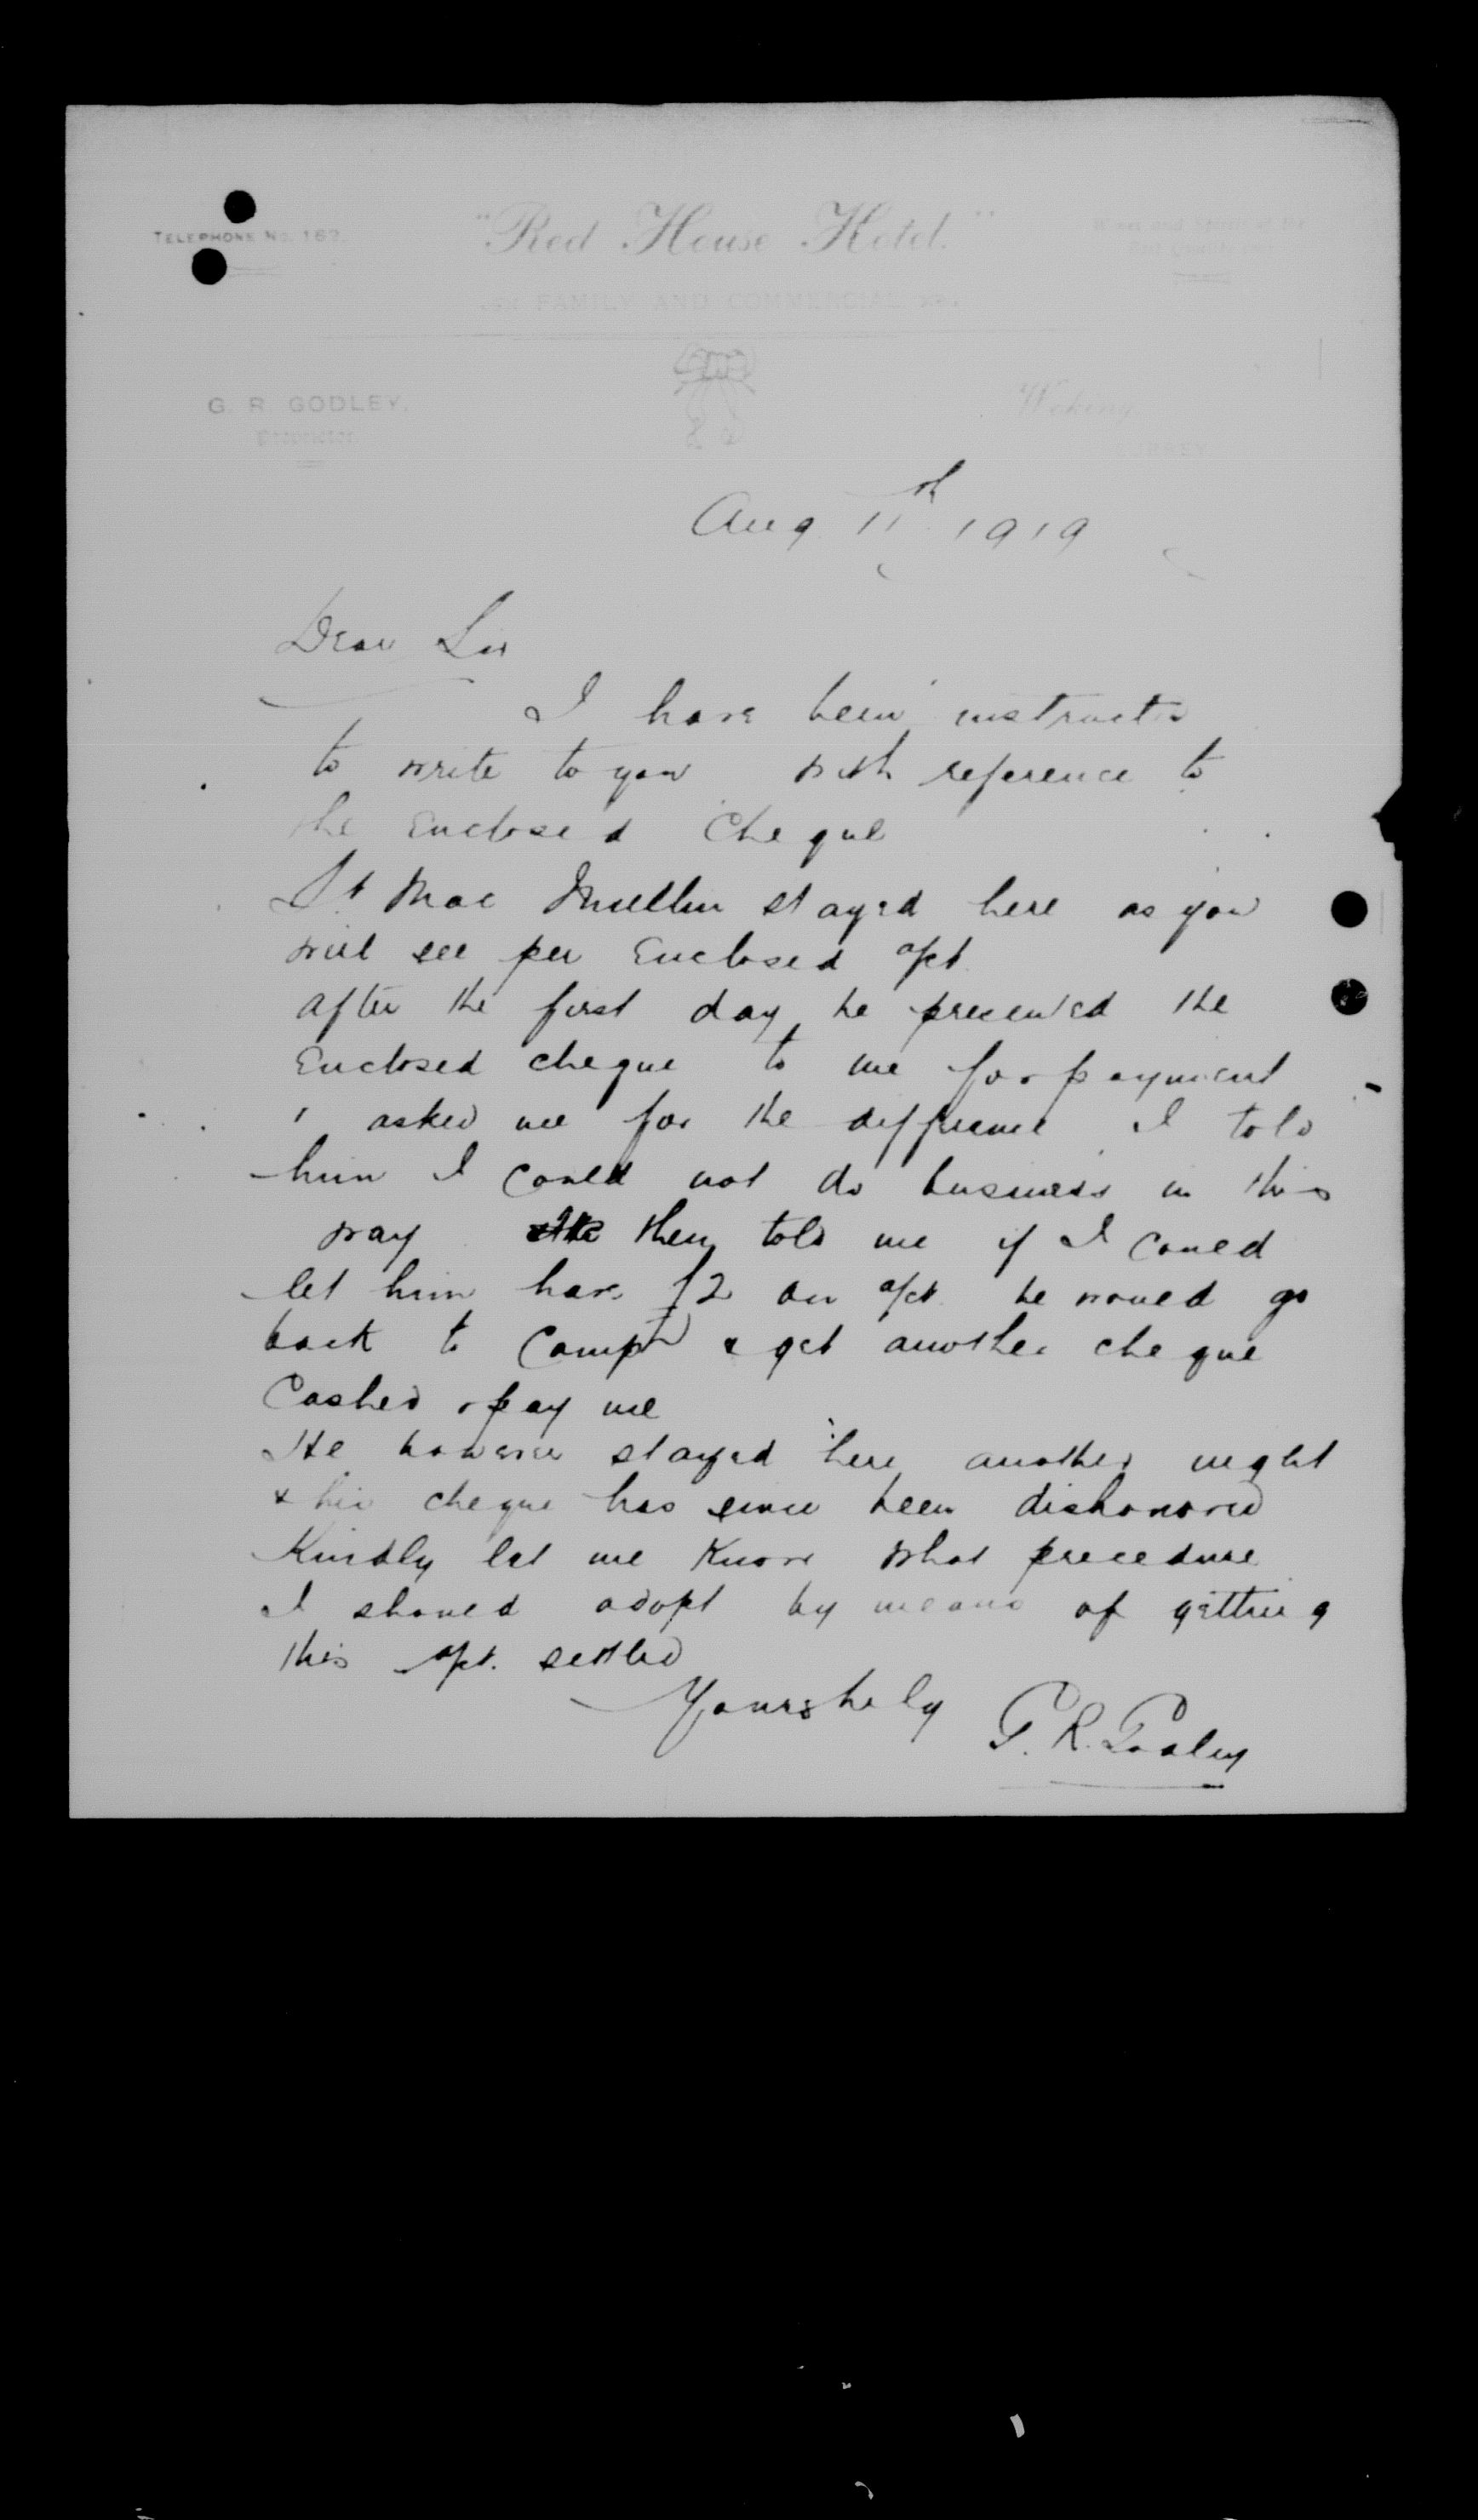 TELEPHONE No. 162.
"Red House Hotel."
Wines and Spirits of the
FAMILY AND COMMERCIAL
G. R. GODLEY,
Proprietor.
Woking
SURREY
Aug 11th 1919
Dear Sir
I have been instructed
to write to you with reference to
the Enclosed Cheque
Lt Mac Mullin stayed here as you
will see per Enclosed a/ct
after the first day he presented the
Enclosed cheque to me for payment
& asked me for the difference I told
him I could not do business in this
way He then told me if I could
let him have £2 on a/ct he would go
back to Camp & get another cheque
Cashed & pay me
He however stayed here another night
& his cheque has since been dishonored
Kindly let me know what precedure
I should adopt by means of getting
this a/ct. settled
Yours truly G. R. Godley